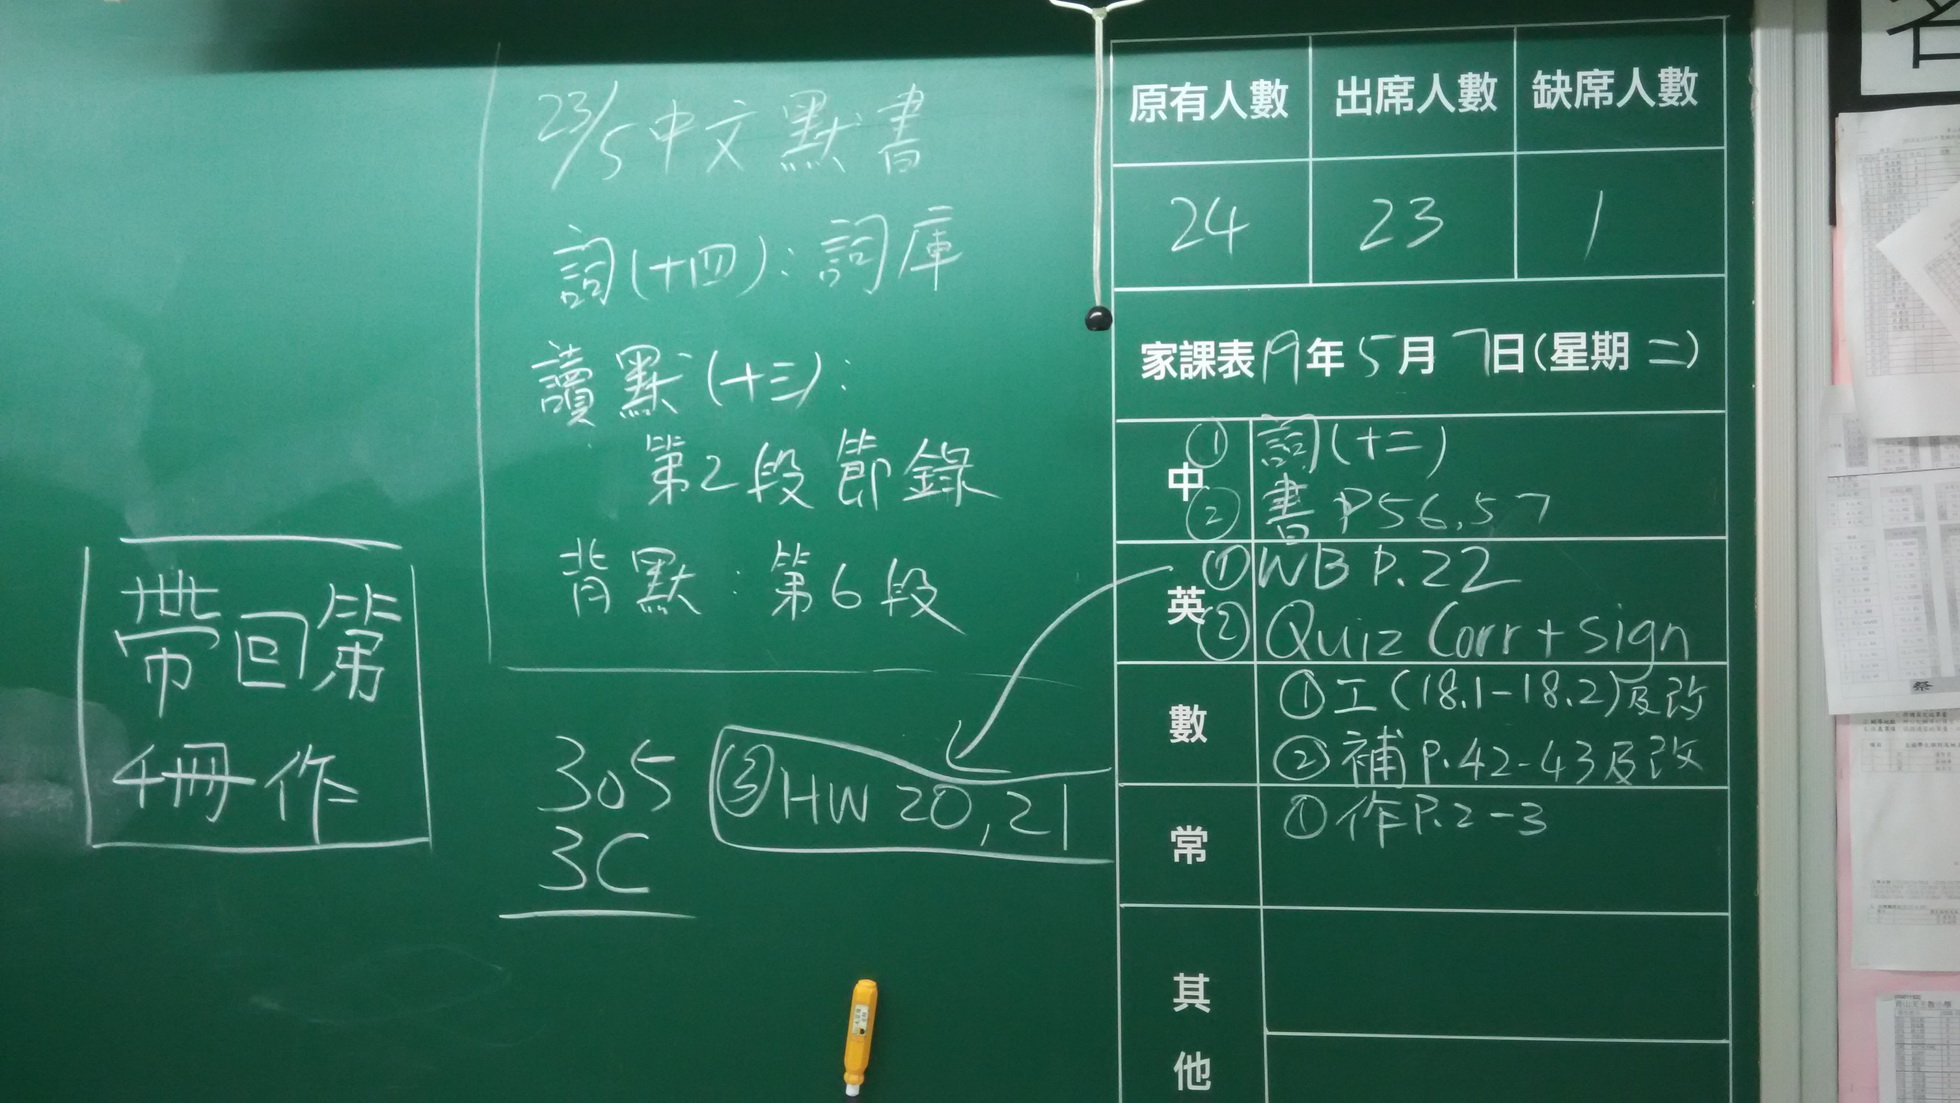 23/5中文默書
詞(十四):詞庫
讀默(十三):
第2段節錄
背默:第6段
帶回第
4冊作
305
3C
③HW 20,21
原有人數 出席人數 缺席人數
24 23 1
家課表19年5月7日(星期二)
中 ①詞(十二)
②書P56,57
英 ①WB P.22
②Quiz Corr+sign
數 ①工(18.1-18.2)及改
②補P.42-43及改
常 ①作P.2-3
其
他
名